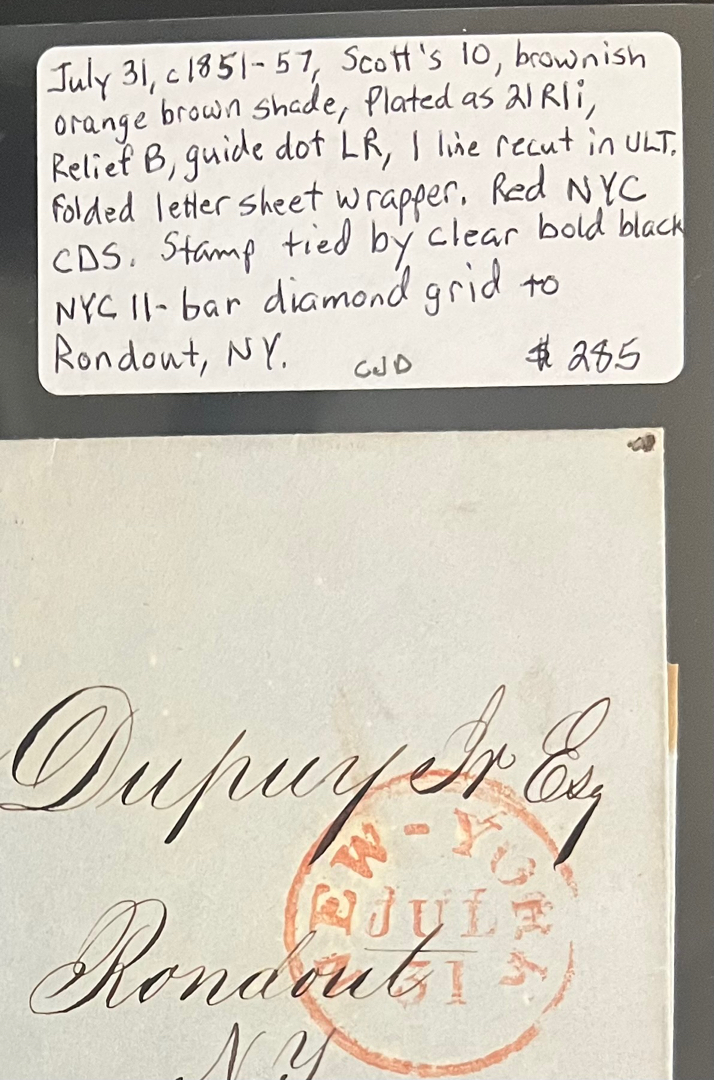 July 31, c1851-57, Scott's 10, brownish
orange brown shade, Plated as 21R1i,
Relief B, guide dot LR, 1 line recut in ULT.
Folded letter sheet wrapper. Red NYC
CDS. Stamp tied by clear bold black
NYC 11-bar diamond grid to
Rondout, NY. CJD $ 285
Dupuy Jr Esq
NEW-YORK
JUL
31
Rondout
N.Y